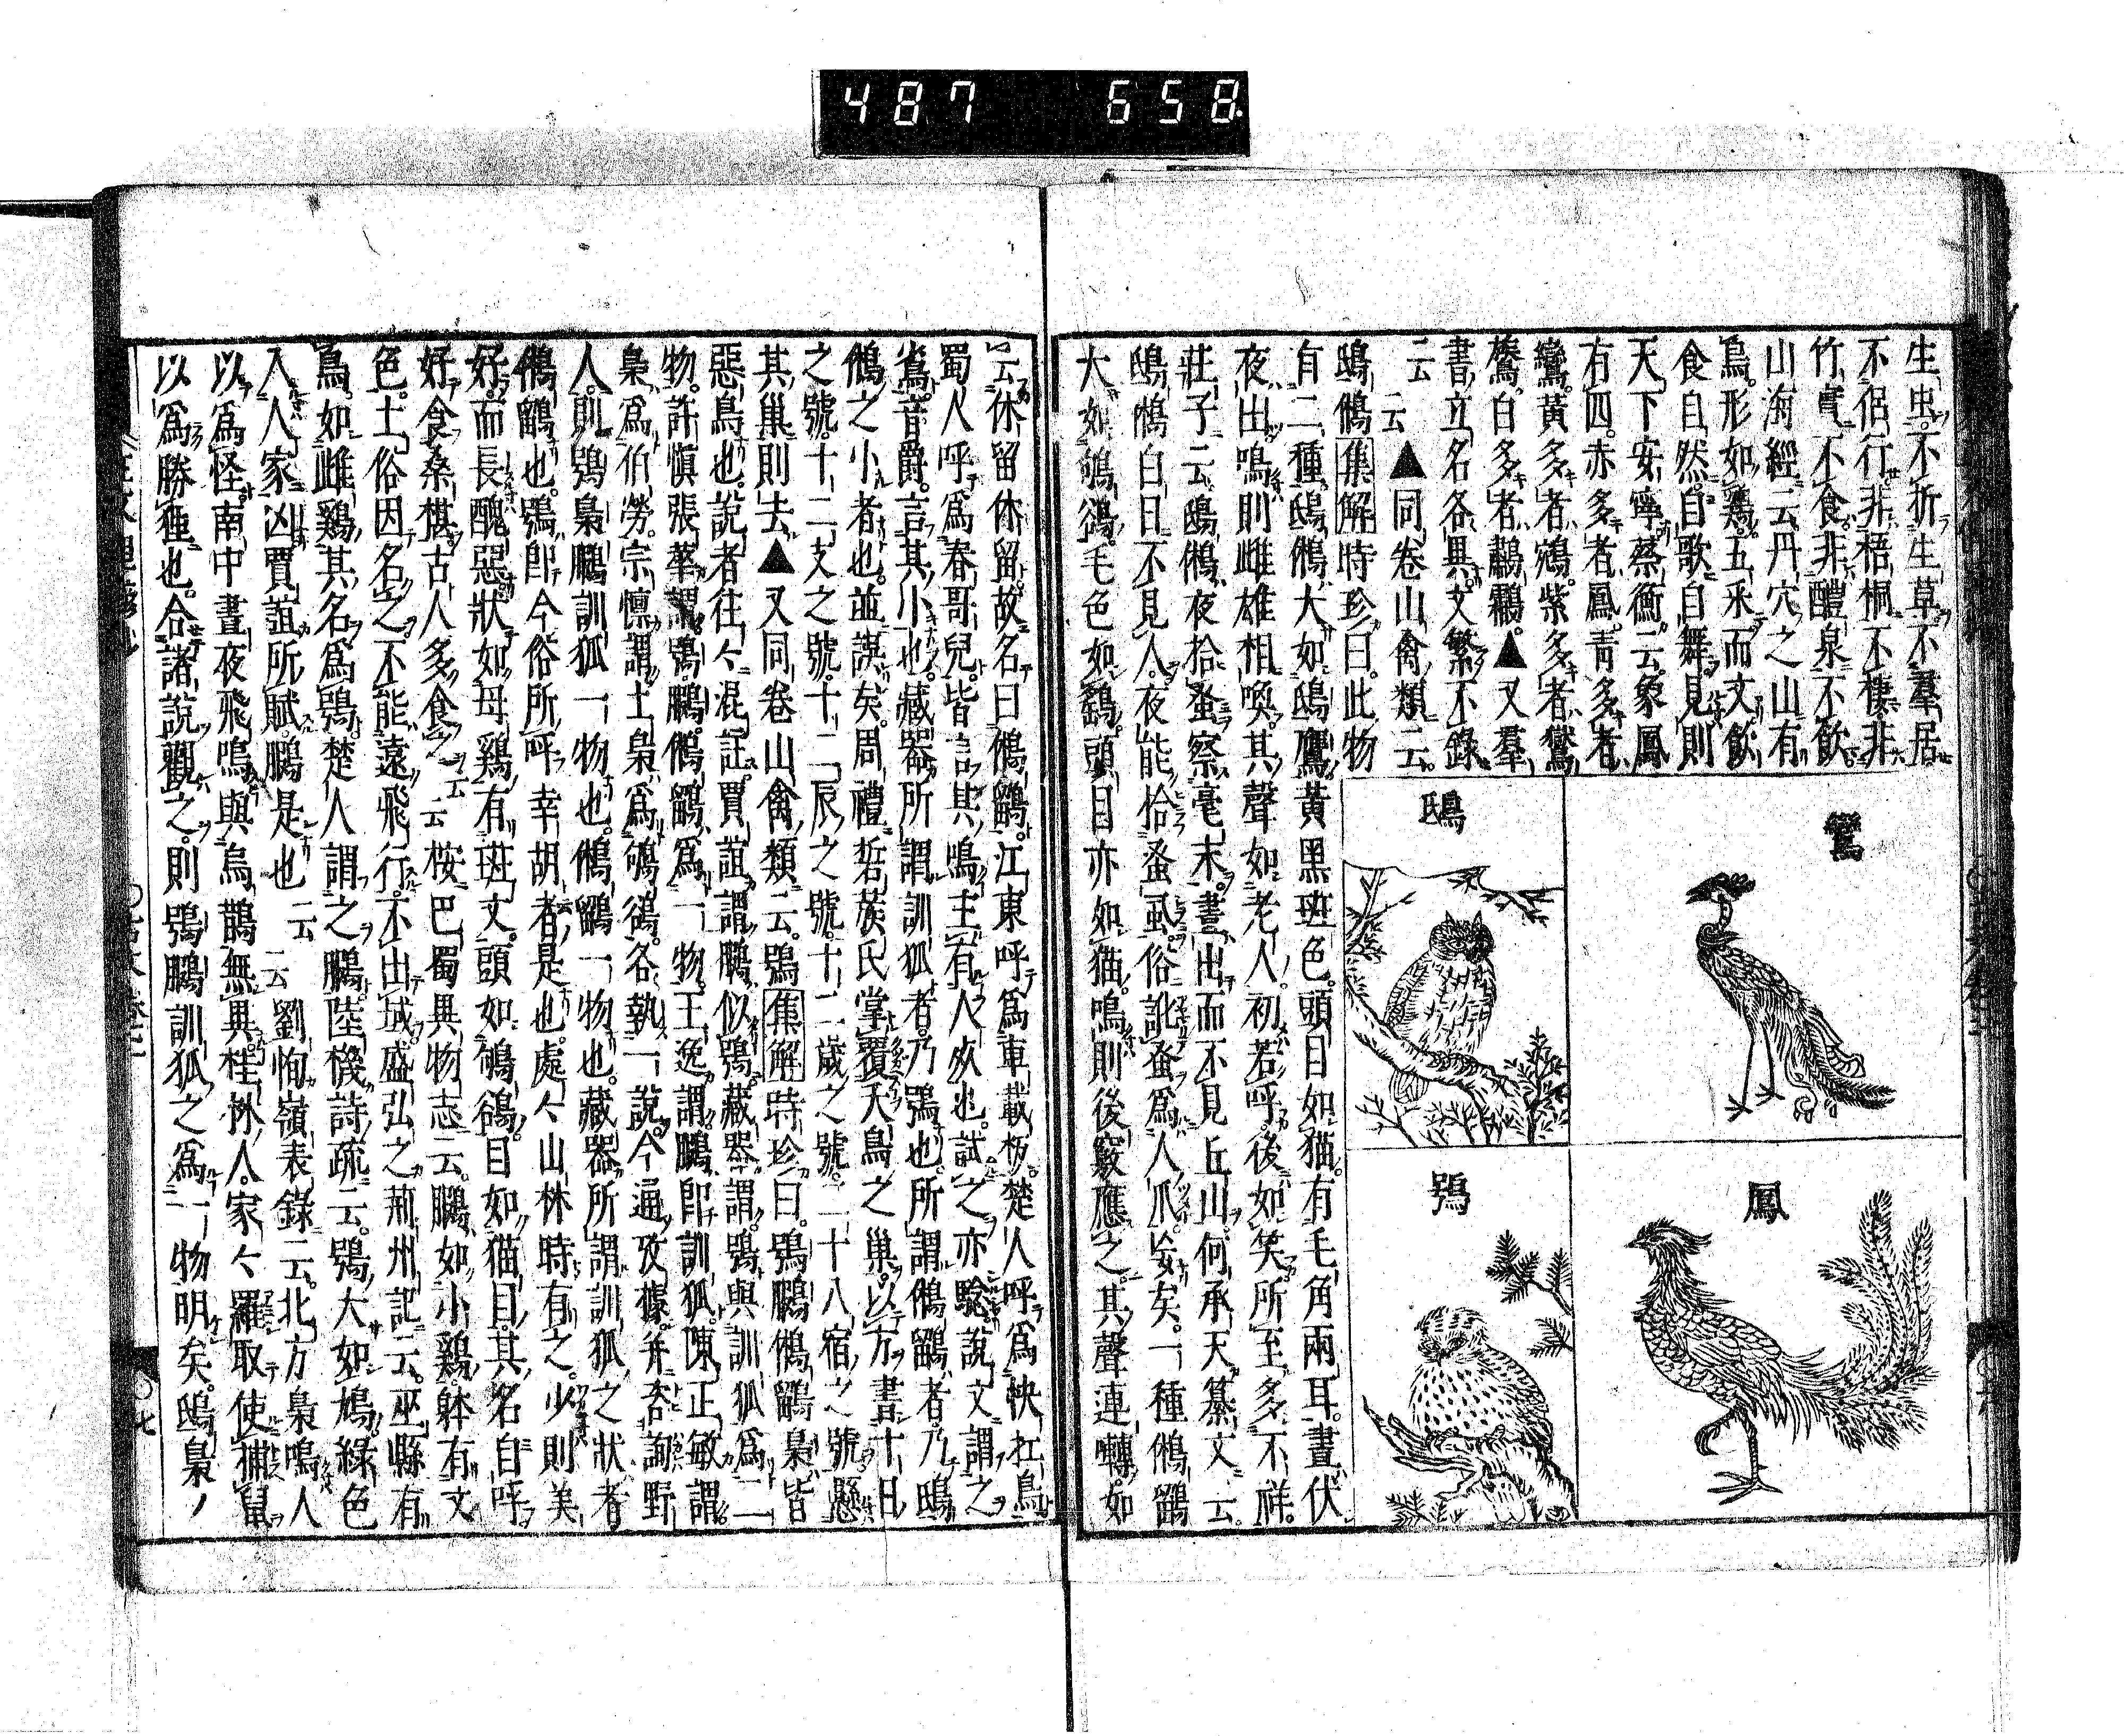 487 658
生虫不折生草不羣居
不侶行非梧桐不棲非
竹實不食非醴泉不飲
山海經云丹穴之山有
鳥形如鷄五采而文飲
食自然自歌自舞見則
天下安寧蔡衡云象鳳
有四赤多者鳳青多者
鸞黃多者鵷紫多者鸑
鷟白多者鷫鸘▲又羣
書立名各異文繁不錄
云云▲同卷山禽類云
鴟鵂集解時珍曰此物
有二種鴟鵂大如鴟鷹黃黑斑色頭目如猫有毛角兩耳晝伏
夜出鳴則雌雄相喚其聲如老人初若呼後如笑所至多不祥
莊子云鴟鵂夜拾蚤察毫末晝出而不見丘山何承天纂文云
鴟鵂白日不見人夜能拾蚤虱俗訛蚤爲人爪妄矣一種鵂鶹
大如鴝鵒毛色如鷂頭目亦如猫鳴則後竅應之其聲連囀如
鸞
鴟
鳳
鴞
云休留休留故名曰鵂鶹江東呼爲車載板楚人呼爲快扛鳥
蜀人呼爲春哥兒皆言其鳴主有人死也試之亦驗說文謂之
雀音爵言其小也藏器所謂訓狐者乃鴞也所謂鵂鶹者乃鴟
鵂之小者也並誤矣周禮硩蔟氏掌覆夭鳥之巢以方書十日
之號十二支之號十二辰之號十二歲之號二十八宿之號懸
其巢則去▲又同卷山禽類云鴞集解時珍曰鴞鵩鵂鶹梟皆
惡鳥也說者往々混註賈誼謂鵩似鴞藏器謂鴞與訓狐爲二
物許愼張華謂鴞鵩鵂鶹爲一物王逸謂鵩卽訓狐陳正敏謂
梟爲伯勞宗懍謂土梟爲鴝鵒各執一說今通攷據幷咨詢野
人則鴞梟鵩訓狐一物也鵂鶹一物也藏器所謂訓狐之狀者
鵂鶹也鴞卽今俗所呼幸胡者是也處々山林時有之少則美
好而長醜惡狀如母鷄有斑文頭如鴝鵒目如猫目其名自呼
好食桑椹古人多食之云云桉巴蜀異物志云鵩如小鷄躰有文
色土俗因名之不能遠飛行不出域盛弘之荊州記云巫縣有
鳥如雌鷄其名爲鴞楚人謂之鵩陸機詩疏云鴞大如鳩綠色
入人家凶賈誼所賦鵩是也云云劉恂嶺表錄云北方梟鳴人
以爲怪南中晝夜飛鳴與烏鵲無異桂林人家々羅取使捕鼠
以爲勝狸也合諸說觀之則鴞鵩訓狐之爲一物明矣鴟梟ノ